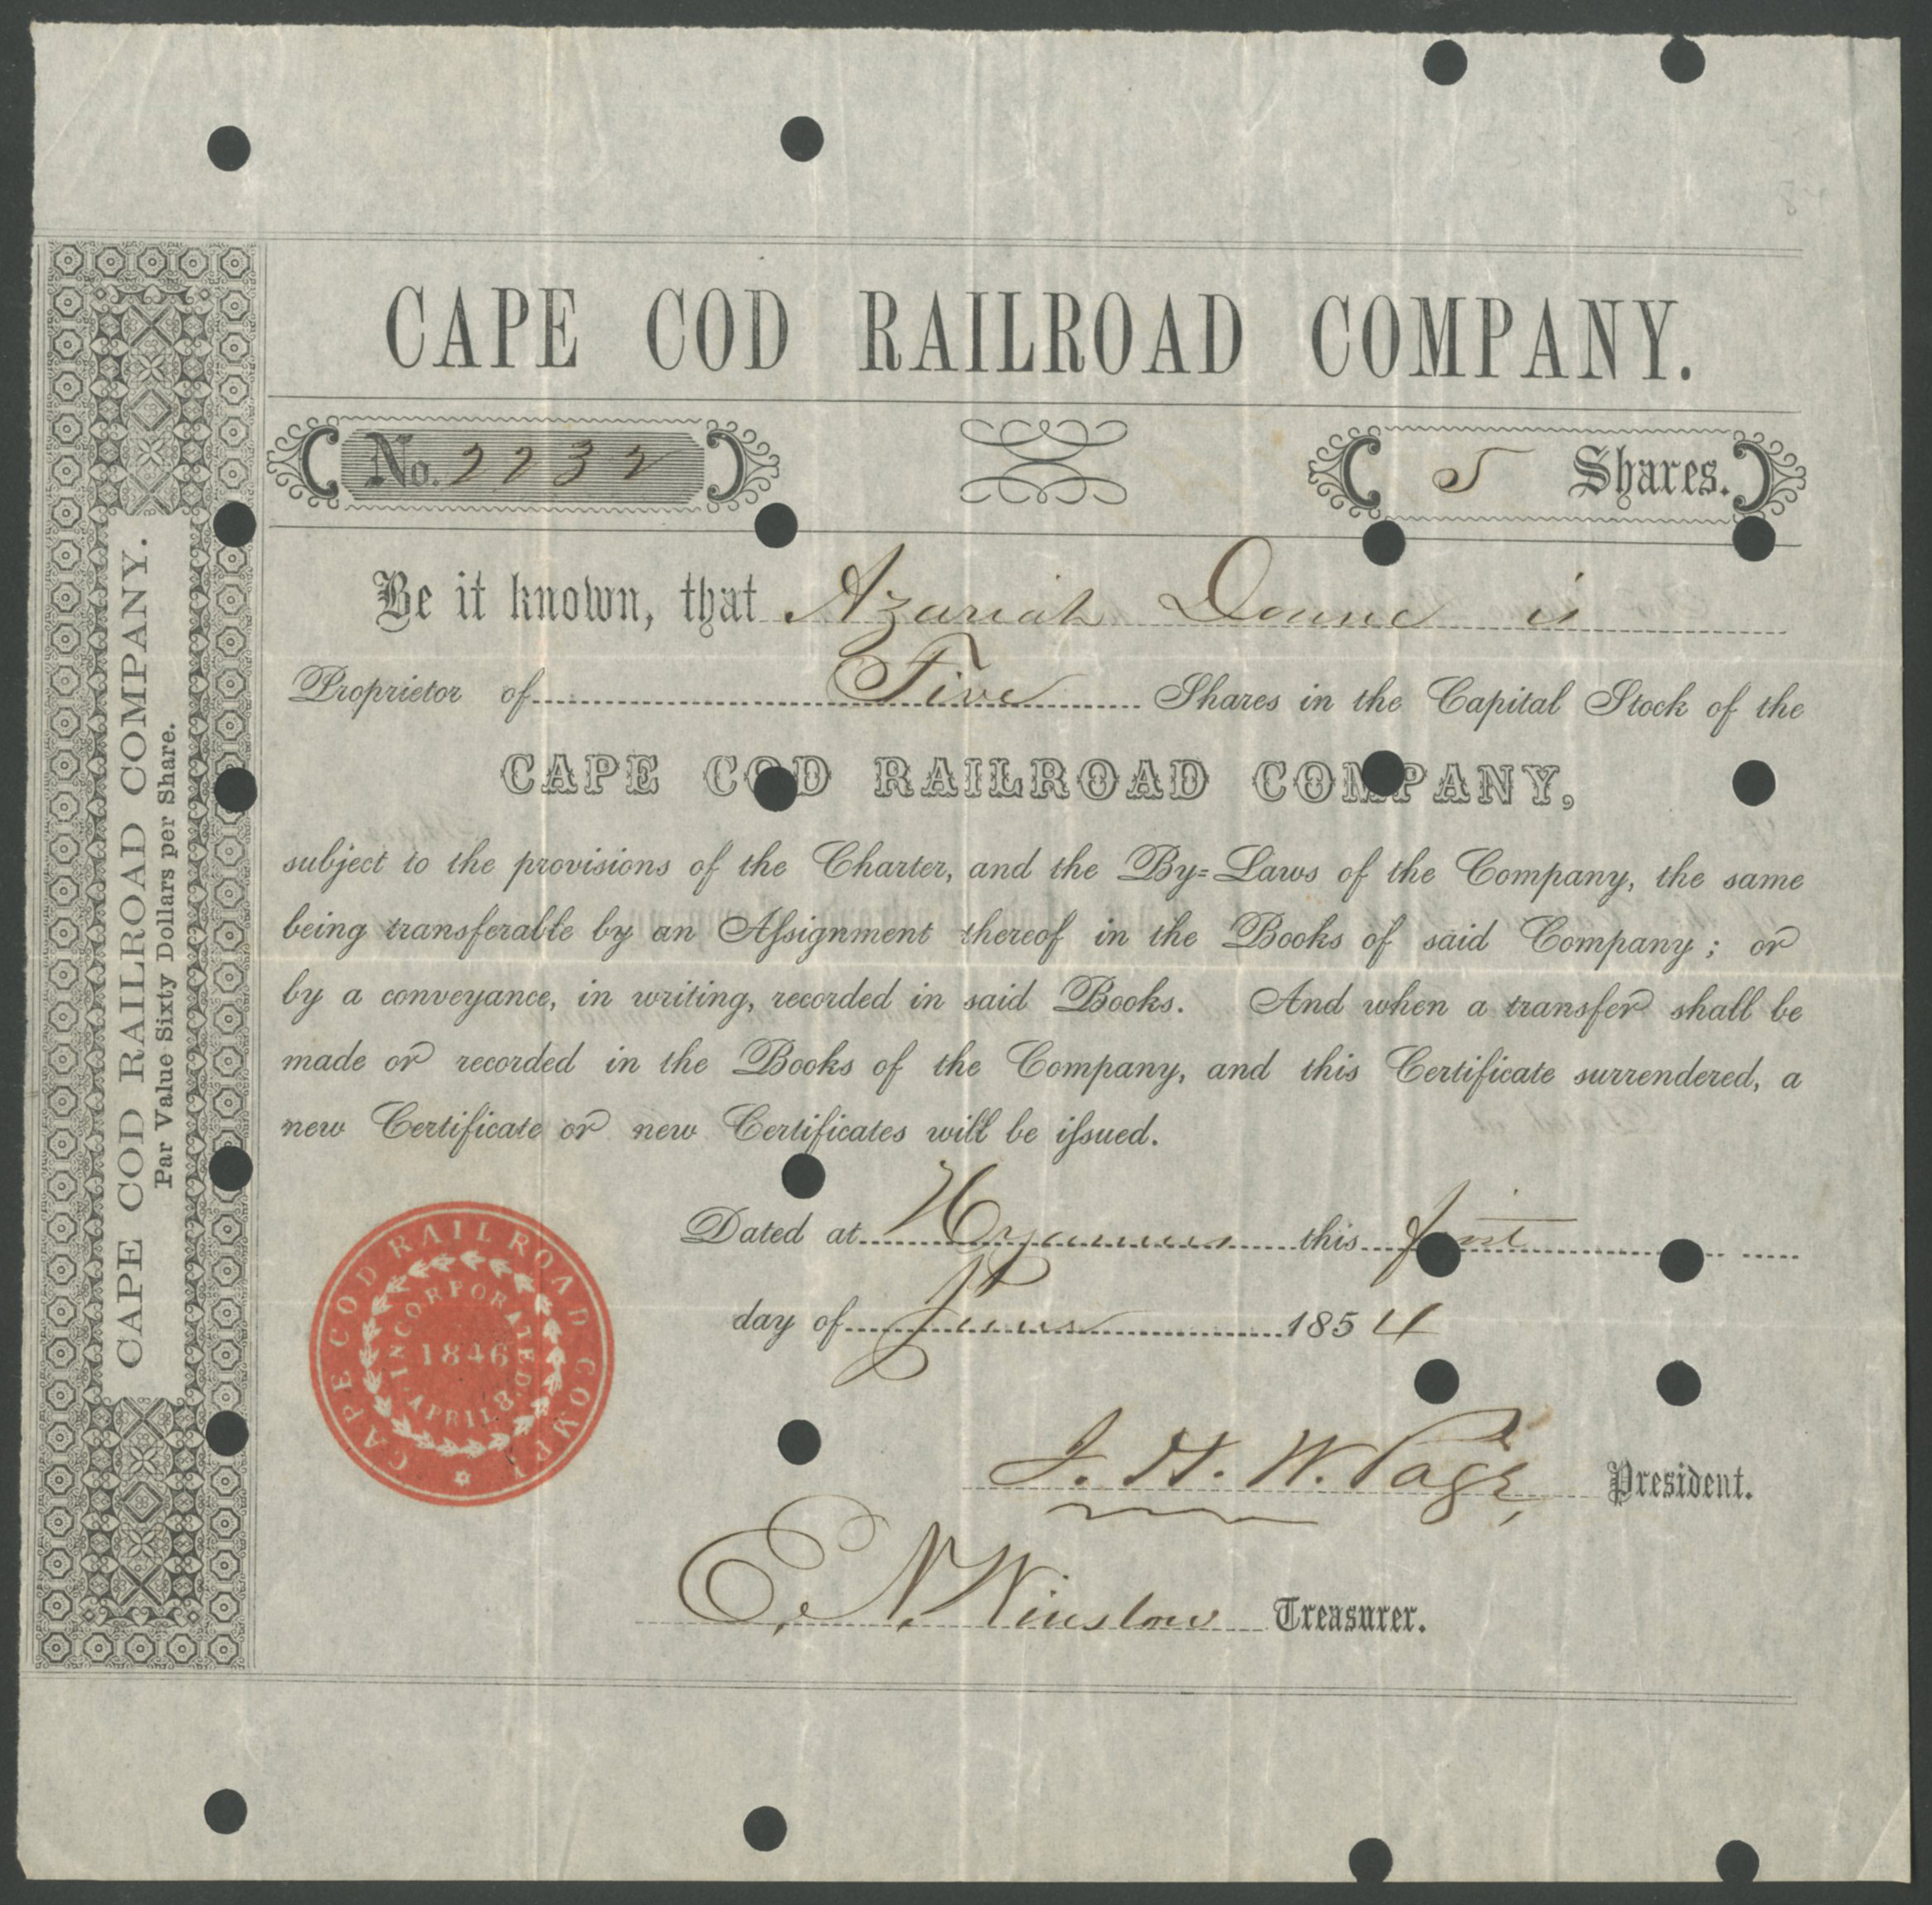 CAPE COD RAILROAD COMPANY.
No. 2232
5 Shares.
Be it known, that Azariah Doane is
Proprietor of Five Shares in the Capital Stock of the
CAPE COD RAILROAD COMPANY,
subject to the provisions of the Charter, and the By=Laws of the Company, the same
being transferable by an Assignment thereof in the Books of said Company; or
by a conveyance, in writing, recorded in said Books. And when a transfer shall be
made or recorded in the Books of the Company, and this Certificate surrendered, a
new Certificate or new Certificates will be issued.
Dated at Hyannis this first
day of June 1854
J. H. W. Page, President.
E. N. Winslow Treasurer.
CAPE COD RAILROAD COMPANY.
Par Value Sixty Dollars per Share.
CAPE COD RAIL ROAD COMPY
INCORPORATED. APRIL 8
1846